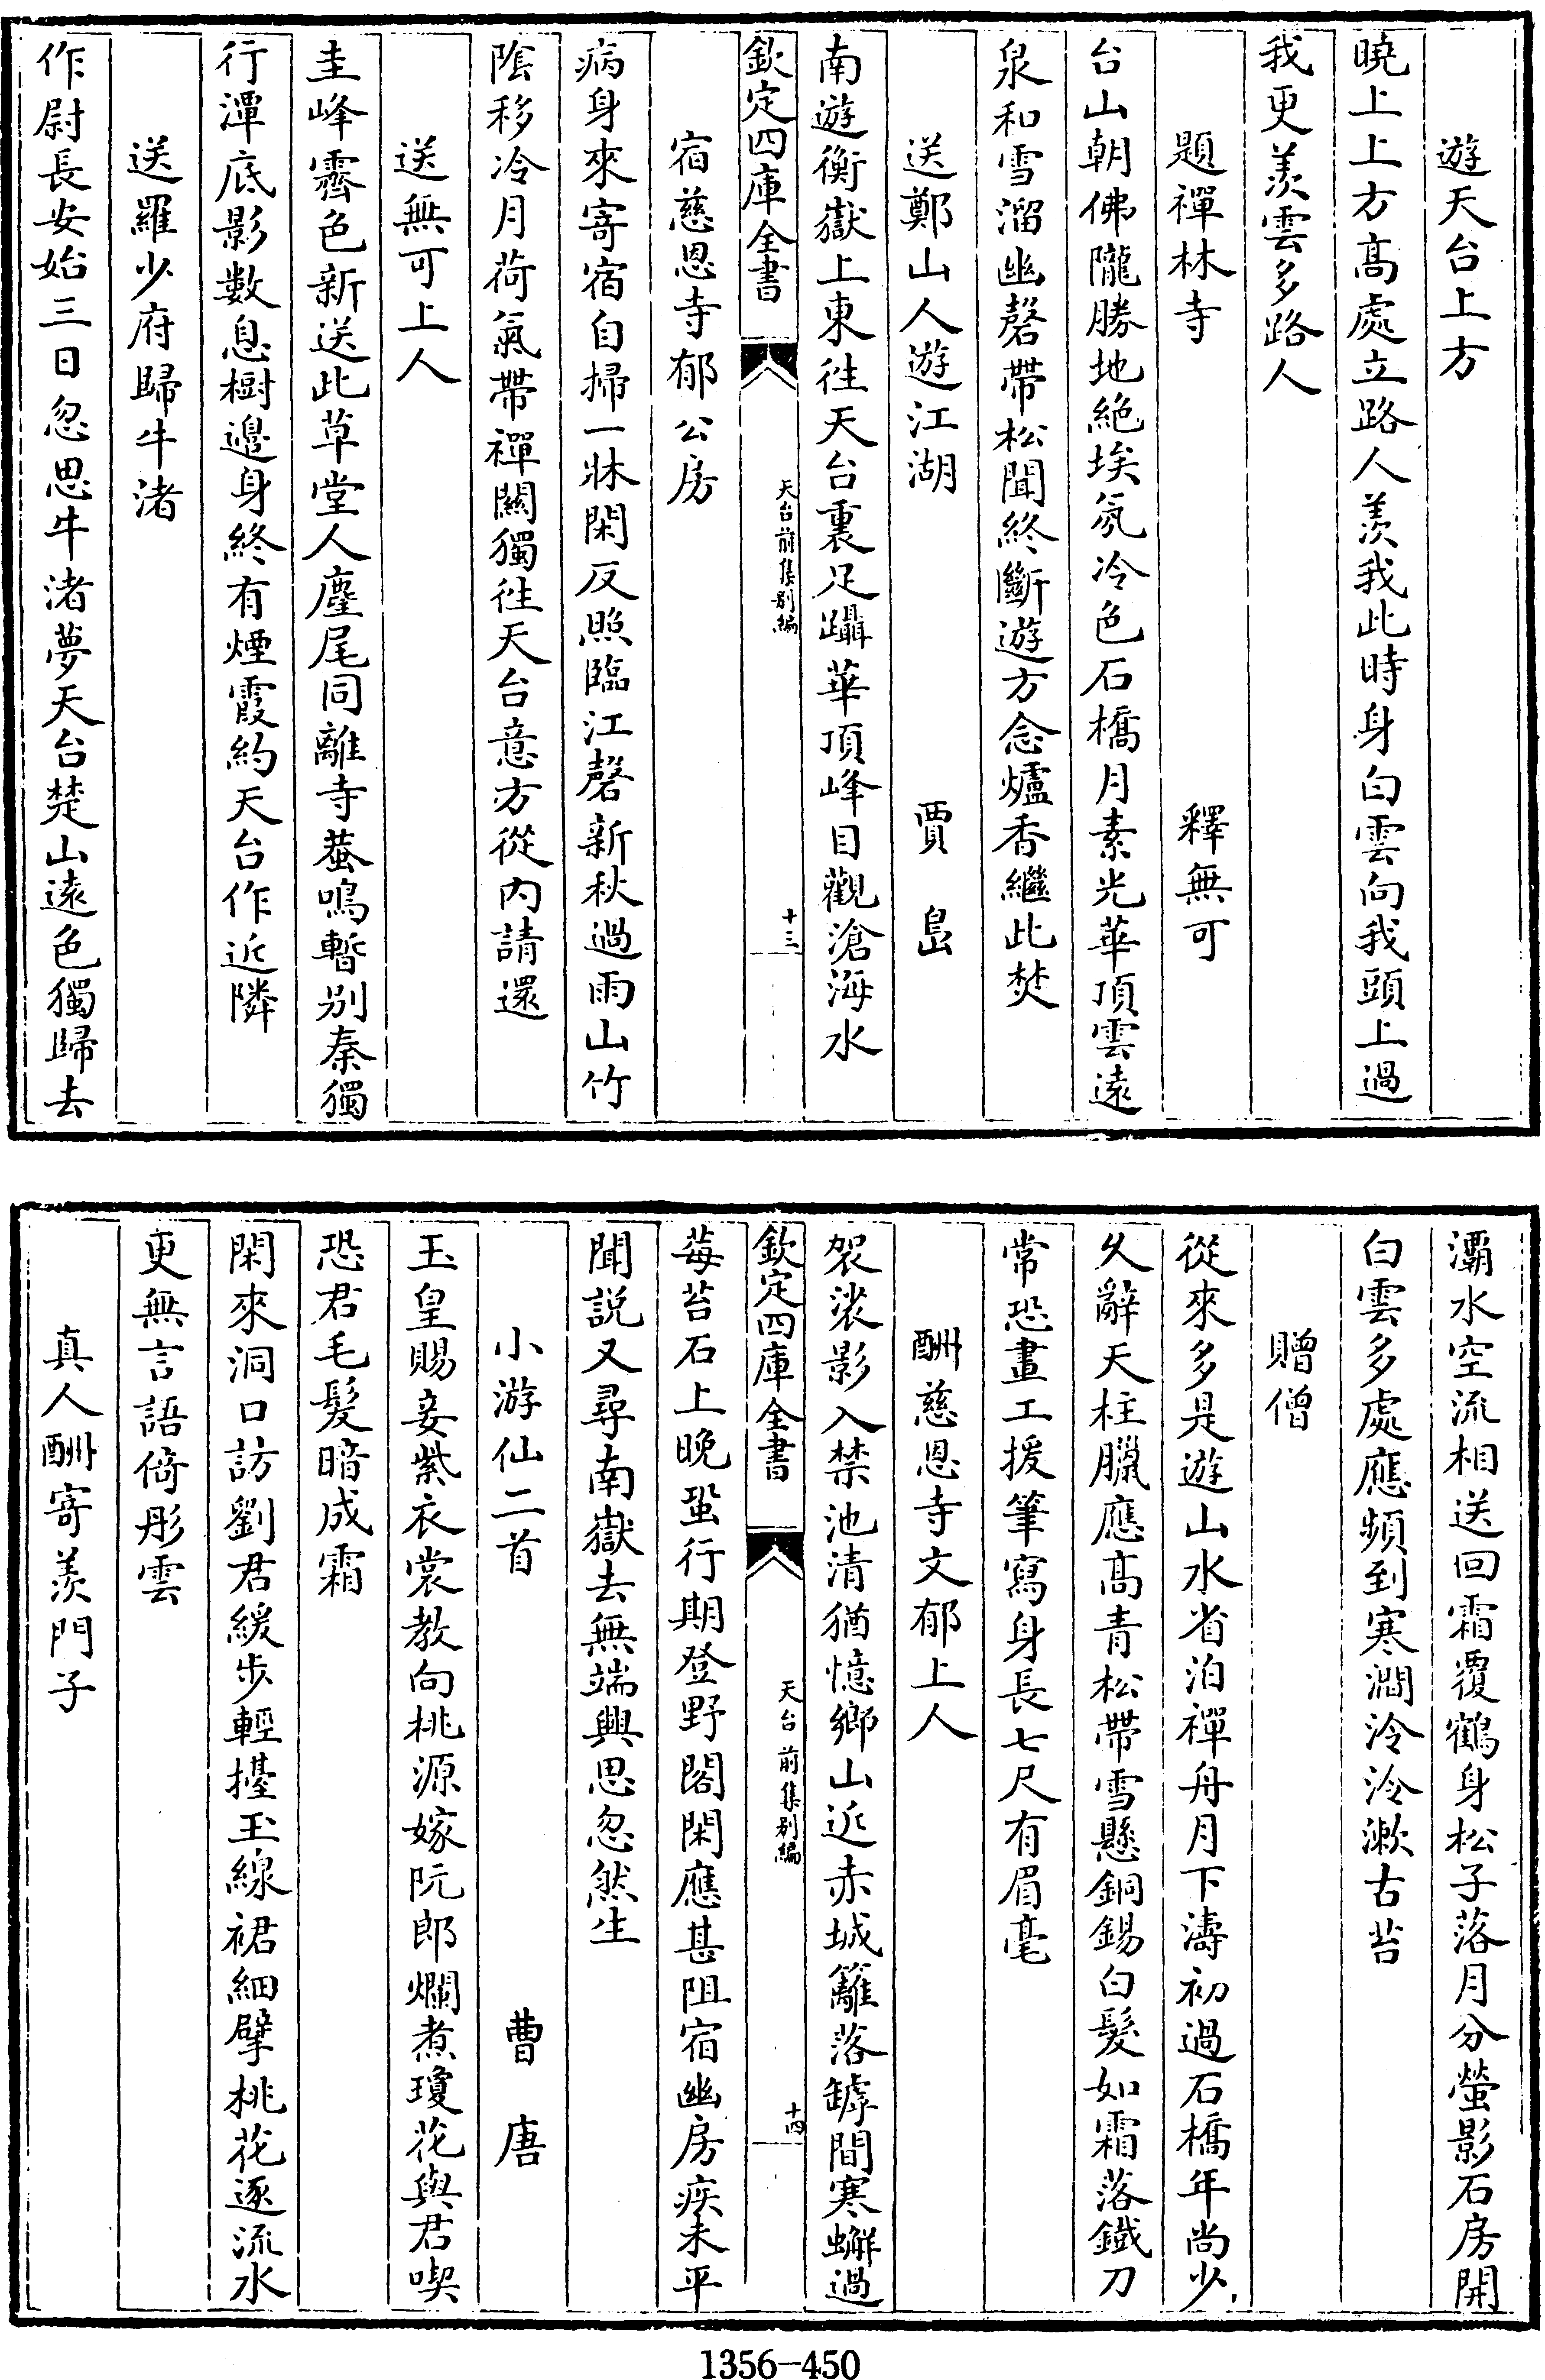 遊天台上方
曉上上方髙處立路人羨我此時身白雲向我頭上過
我更羨雲多路人
題禪林寺 釋無可
台山朝佛隴勝地絶埃氛冷色石橋月素光華頂雲逺
泉和雪溜幽磬帶松聞終斷遊方念爐香繼此焚
送鄭山人遊江湖 賈島
南遊衡嶽上東徃天台裏足躡華頂峰目觀滄海水
欽定四庫全書 天台前集别編 十三
宿慈恩寺郁公房
病身來寄宿自掃一牀閑反照臨江磬新秋過雨山竹
陰移冷月荷氣帶禪關獨徃天台意方從内請還
送無可上人
圭峰霽色新送此草堂人麈尾同離寺蛩鳴暫别秦獨
行潭底影數息樹邉身終有煙霞約天台作近隣
送羅少府歸牛渚
作尉長安始三日忽思牛渚夢天台楚山逺色獨歸去
灞水空流相送回霜覆鶴身松子落月分螢影石房開
白雲多處應頻到寒澗泠泠漱古苔
贈僧
從來多是遊山水省泊禪舟月下濤初過石橋年尚少
乆辭天柱臘應髙青松帶雪懸銅錫白髮如霜落鐵刀
常恐畫工援筆寫身長七尺有眉毫
酬慈恩寺文郁上人
袈裟影入禁池清猶憶鄉山近赤城籬落罅間寒蠏過
欽定四庫全書 天台前集别編 十四
莓苔石上晚蛩行期登野閣閑應甚阻宿幽房疾未平
聞說又尋南嶽去無端興思忽然生
小游仙二首 曹唐
玉皇賜妾紫衣裳教向桃源嫁阮郎爛煮瓊花與君喫
恐君毛髮暗成霜
閑來洞口訪劉君緩步輕擡玉線裙細擘桃花逐流水
更無言語倚彤雲
真人酬寄羨門子
1356-450